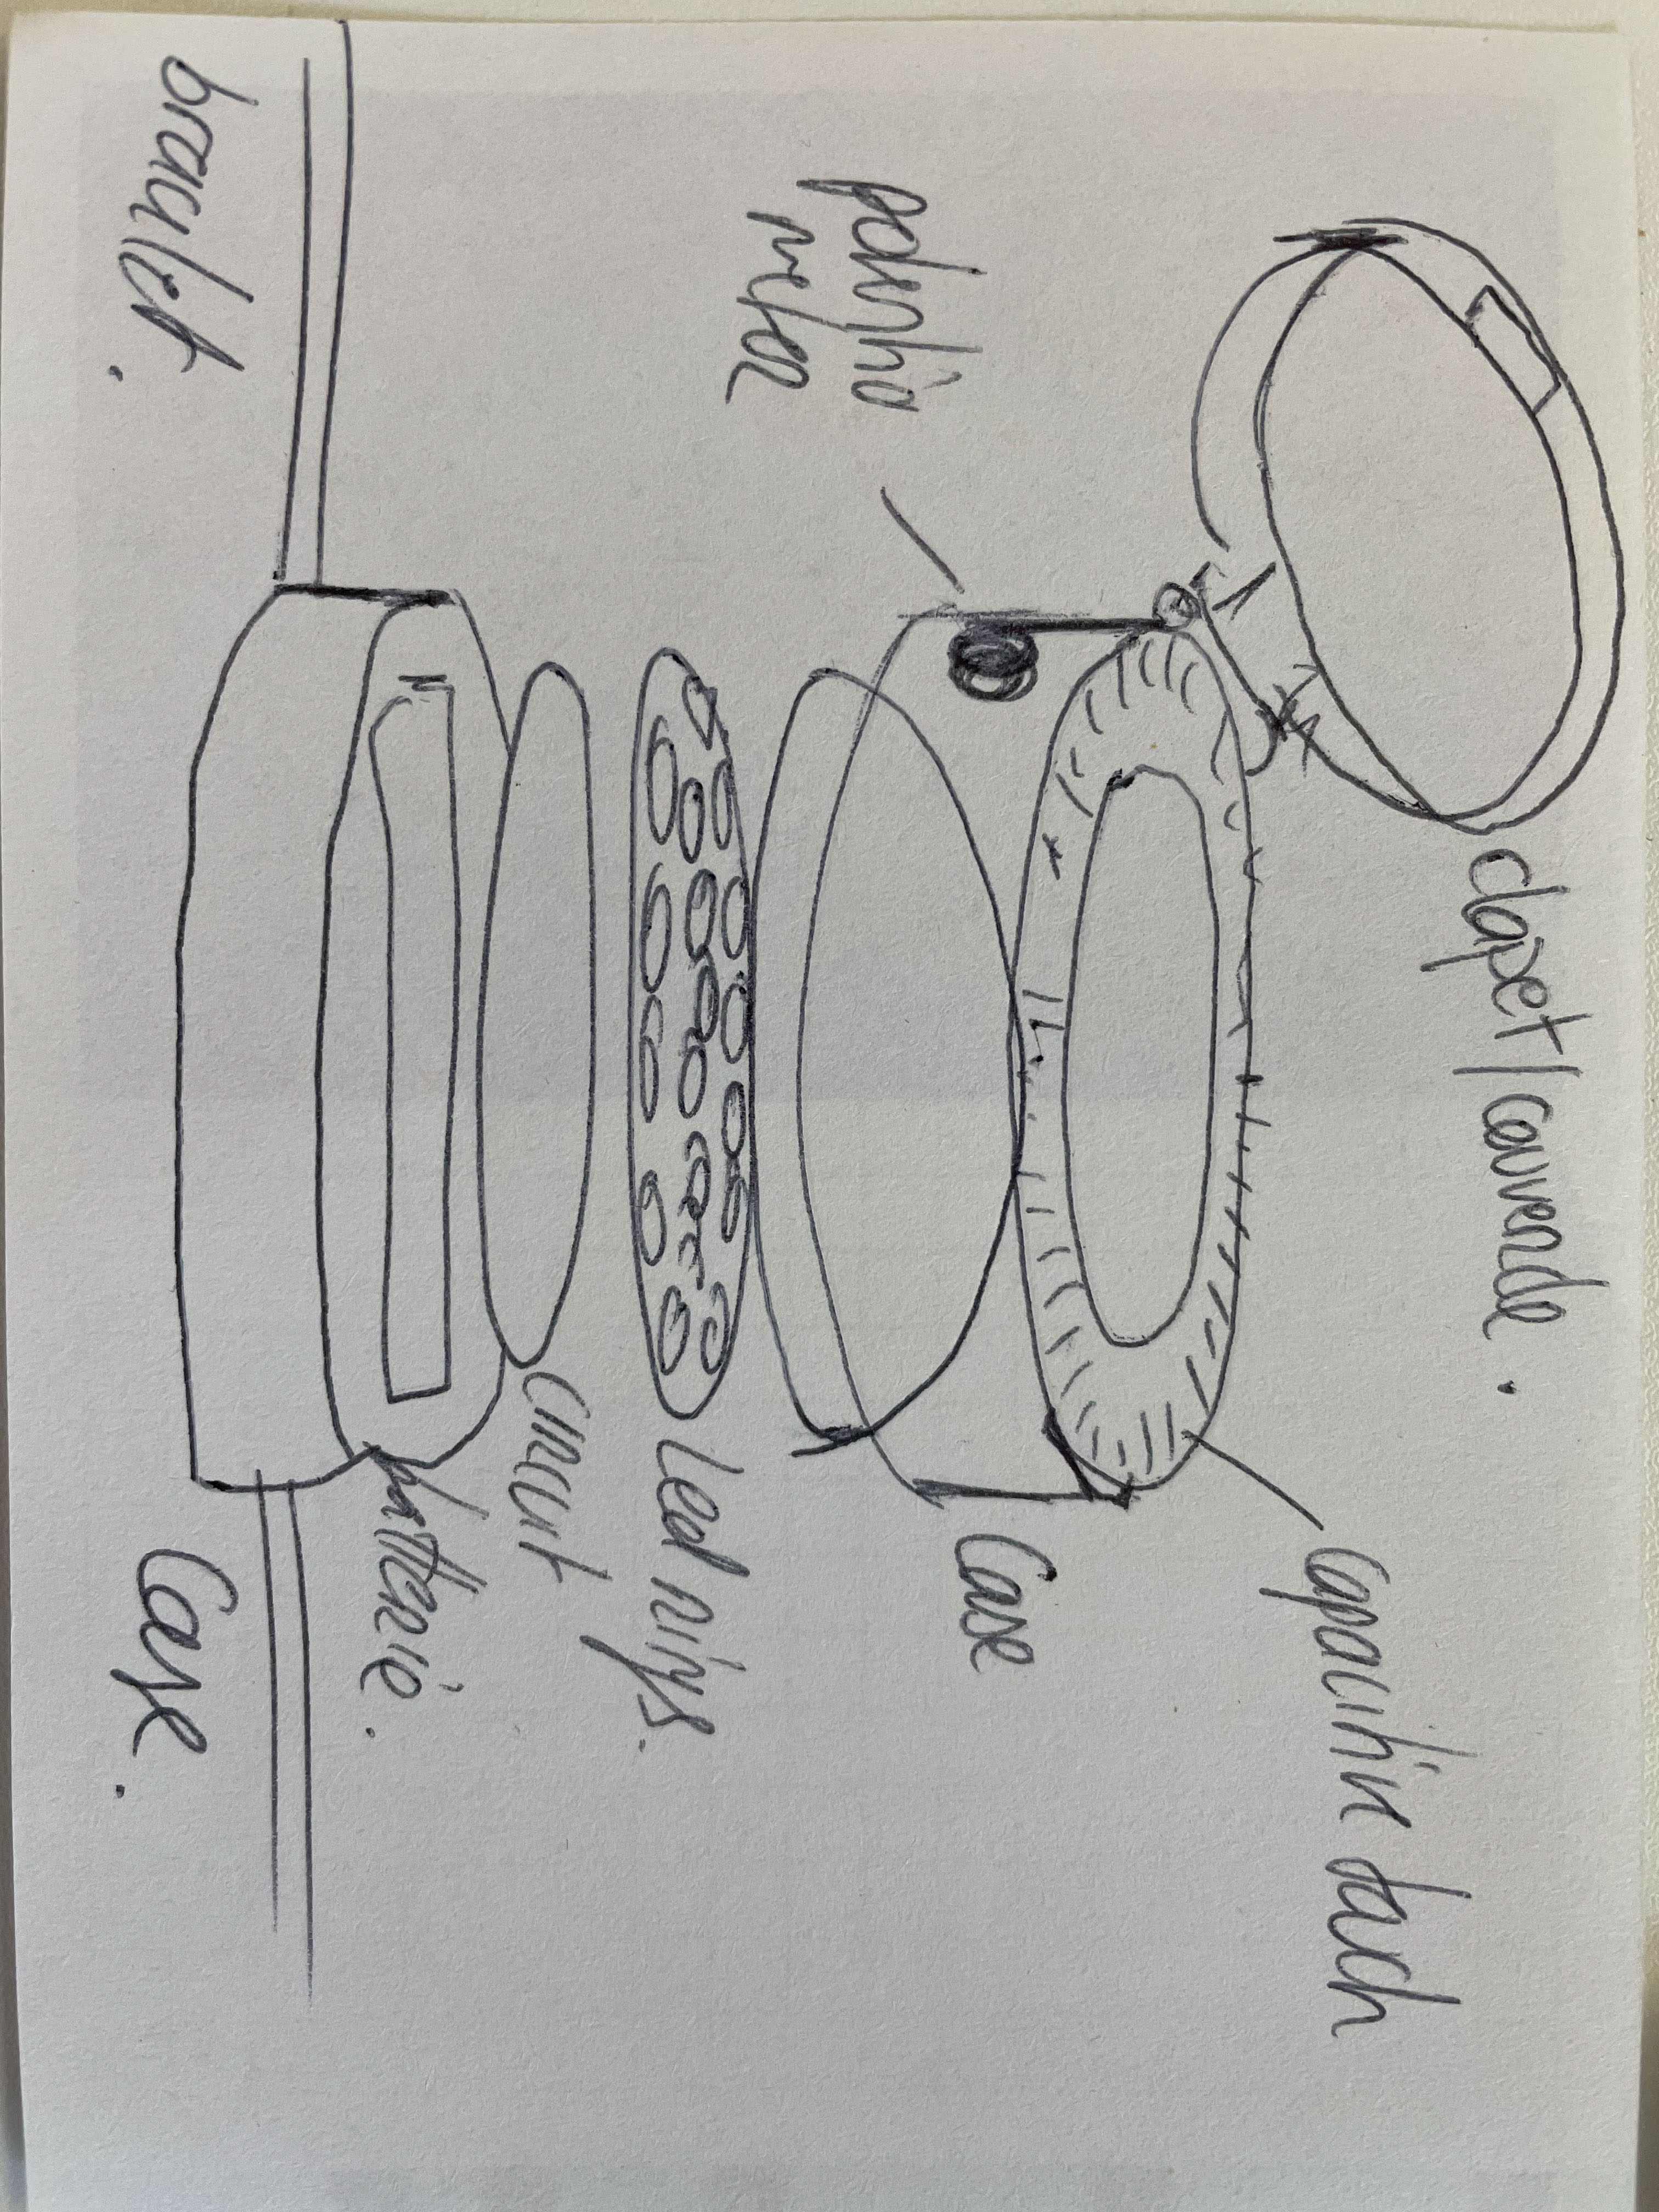 clapet/couvercle.
capacitive touch
Case
potentio
meter
Led rings.
circuit
batterie.
bracelet.
Case.